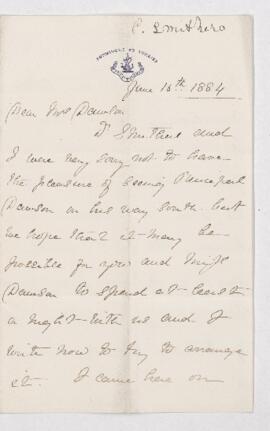 E. Smithers
June 16th 1884
Dear Mrs Dawson
Dr Smithers and
I were very sorry not to have
the pleasure of seeing Principal
Dawson on his way South but
we hope that it may be
possible for you and Miss
Dawson to spend at least
a night with us and I
write now to try to arrange
it. I came here on